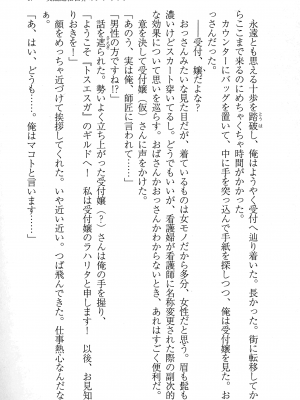 永遠とも思える十歩を踏破し、俺はようやく受付へ辿り着いた。長かった。街に転移してか
らここまで来るのにめちゃくちゃ時間がかかった。
カウンターにバッグを置いて、中に手を突っ込んで手紙を探しつつ、俺は受付嬢を見た。
――受付、嬢だよな？
おっさんみたいな見た目だが、着ているのは女モノだから多分、女性だと思う。眉も髭も
濃いけどスカート穿いてるし。どうでもいいが、看護婦が看護師に名称変更された際の副次的
な効果について思いを馳せる。おばさんかおっさんかわからないとき、あれはすごく便利だ。
意を決して受付嬢（仮）さんに声をかけた。
「あの、俺、師匠に言われて――」
「男性の方ですね!?」
話を遮られた。勢いよく立ち上がった受付嬢（？）さんは俺の手を握り、
「ようこそ『トスエスガ』のギルドへ！　私は受付嬢のラハリタと申します！　以後、お見知
りおきを！」
顔をめっちゃ近づけて挨拶してくれた。いや近い近い。つば飛んできた。仕事熱心なんだな
ぁ。
「あ、はい、どうも……。俺はマコトと言います……」